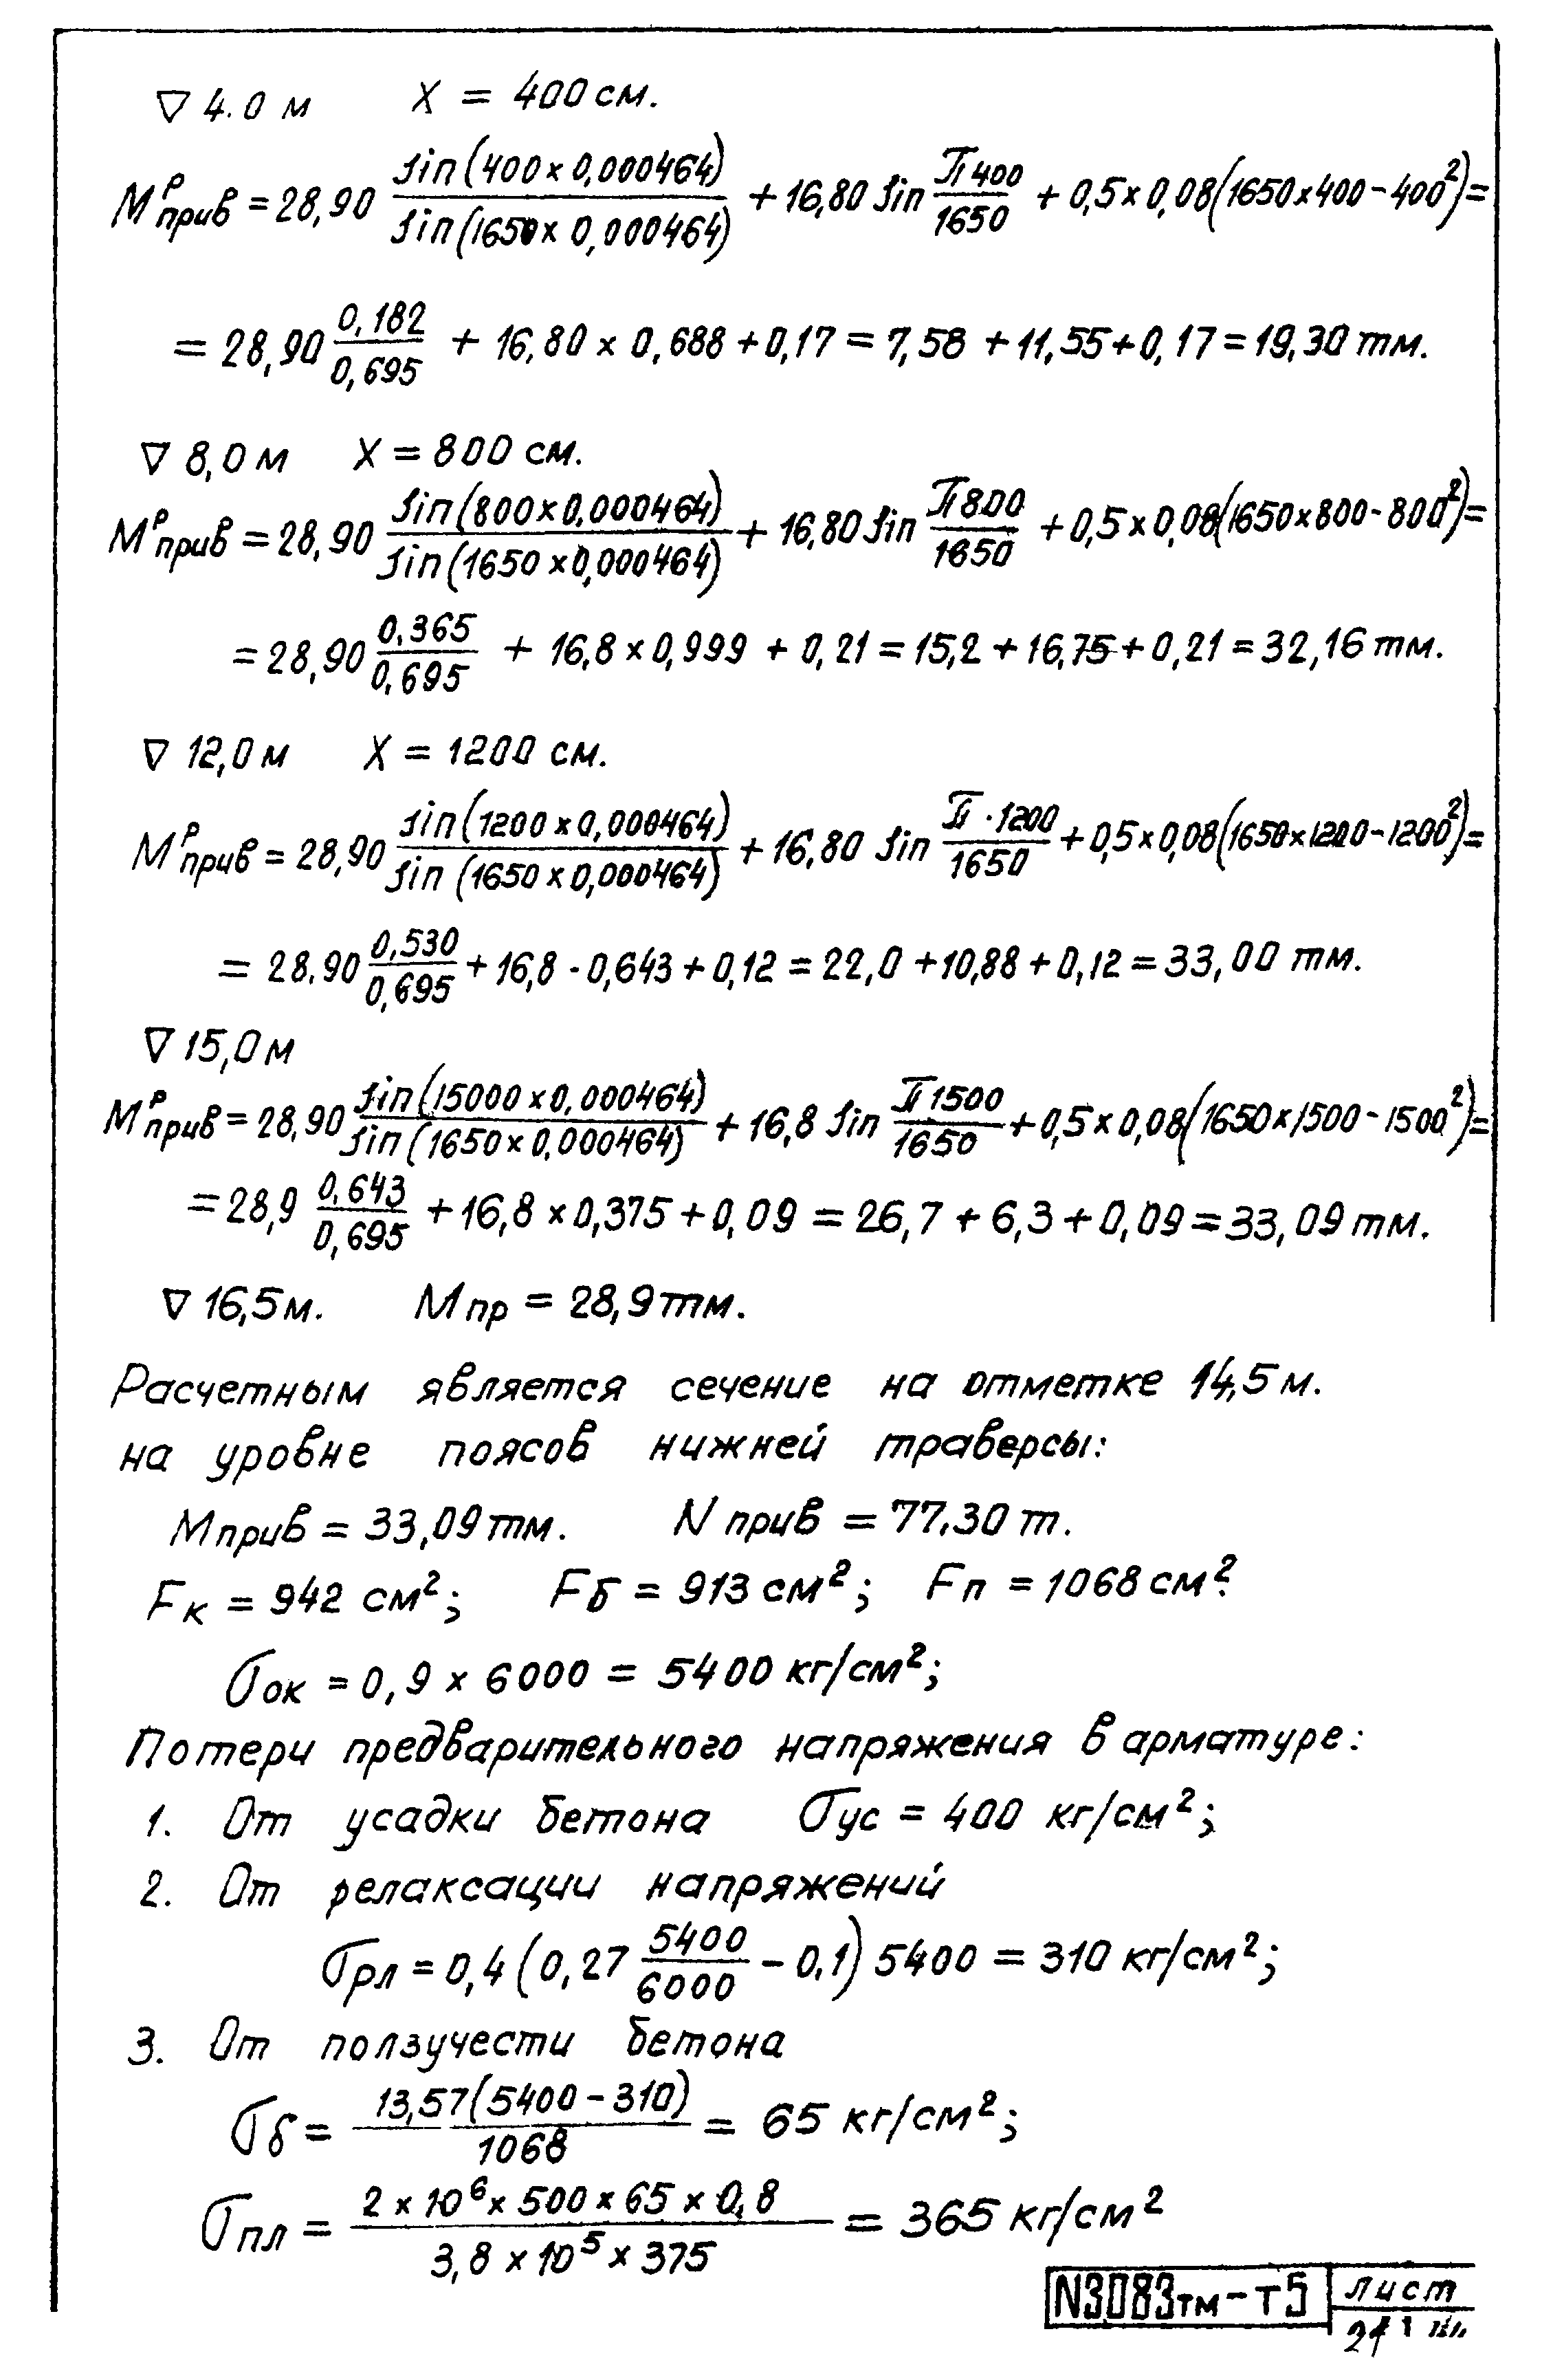 ∇ 4.0 м X = 400 см.
Mᵖприв = 28,90 sin(400 x 0,000464) / sin(1650 x 0,000464) + 16,80 sin π 400 / 1650 + 0,5 x 0,08(1650 x 400 - 400²) =
= 28,90 0,182 / 0,695 + 16,80 x 0,688 + 0,17 = 7,58 + 11,55 + 0,17 = 19,30 тм.
∇ 8,0 м X = 800 см.
Mᵖприв = 28,90 sin(800 x 0,000464) / sin(1650 x 0,000464) + 16,80 sin π 800 / 1650 + 0,5 x 0,08(1650 x 800 - 800²) =
= 28,90 0,365 / 0,695 + 16,8 x 0,999 + 0,21 = 15,2 + 16,75 + 0,21 = 32,16 тм.
∇ 12,0 м X = 1200 см.
Mᵖприв = 28,90 sin(1200 x 0,000464) / sin(1650 x 0,000464) + 16,80 sin π · 1200 / 1650 + 0,5 x 0,08(1650 x 1200 - 1200²) =
= 28.90 0,530 / 0,695 + 16,8 · 0,643 + 0,12 = 22,0 + 10,88 + 0,12 = 33,00 тм.
∇ 15,0 м
Mᵖприв = 28,90 sin(15000 x 0,000464) / sin(1650 x 0,000464) + 16,8 sin π 1500 / 1650 + 0,5 x 0,08(1650 x 1500 - 1500²) =
= 28,9 0,643 / 0,695 + 16,8 x 0,375 + 0,09 = 26,7 + 6,3 + 0,09 = 33,09 тм.
∇ 16,5 м. Mпр = 28,9 тм.
Расчетным является сечение на отметке 14,5 м.
на уровне поясов нижней траверсы:
Mприв = 33,09 тм. N прив = 77,30 т.
Fк = 942 см²; Fб = 913 см²; Fп = 1068 см².
σок = 0,9 x 6000 = 5400 кг/см²;
Потери предварительного напряжения в арматуре:
1. От усадки бетона σус = 400 кг/см²;
2. От релаксации напряжений
σрл = 0,4 (0,27 5400 / 6000 - 0,1) 5400 = 310 кг/см²;
3. От ползучести бетона
σб = 13,57(5400 - 310) / 1068 = 65 кг/см²;
σпл = 2 x 10⁶ x 500 x 65 x 0,8 / 3,8 x 10⁵ x 375 = 365 кг/см²
N3083тм-т5 лист